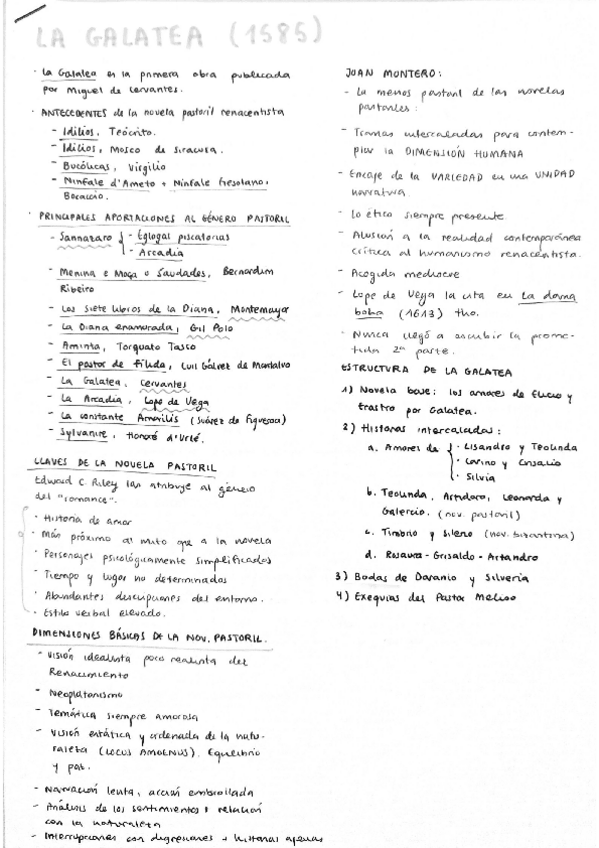 LA GALATEA (1585)
· La Galatea es la primera obra publicada
por Miguel de Cervantes.
· ANTECEDENTES de la novela pastoril renacentista
- Idilios, Teócrito.
- Idilios, Mosco de Siracura.
- Bucólicas, Virgilio
- Ninfale d'Ameto + Ninfale Fiesolano,
Bocaccio.
· PRINCIPALES APORTACIONES AL GÉNERO PASTORIL
- Sannazaro { - Eglogas piscatorias
- Arcadia
- Menina e Moça o Saudades, Bernardim
Ribeiro
- Los siete libros de la Diana, Montemayor
- La Diana enamorada, Gil Polo
- Aminta, Torquato Tasco
- El pastor de Fílida, Luis Gálvez de Montalvo
- La Galatea, Cervantes
- La Arcadia, Lope de Vega
- La constante Amarilis (Suárez de Figueroa)
- Sylvanire, Honoré d'Urfé.
CLAVES DE LA NOVELA PASTORIL
Edward C. Riley las atribuye al género
del "romance".
· Historia de amor
· Más próximo al mito que a la novela
· Personajes psicológicamente simplificados
- Tiempo y lugar no determinados
- Abundantes descripciones del entorno.
· Estilo verbal elevado.
DIMENSIONES BÁSICAS DE LA NOV. PASTORIL.
- Visión idealista poco realista del
Renacimiento
- Neoplatonismo
- Temática siempre amorosa
- Visión estática y ordenada de la natu-
raleza (LOCUS AMOENUS). Equilibrio
y paz.
- Narración lenta, acción embrollada
- Análisis de los sentimientos y relación
con la naturaleza
- Interrupciones con digresiones + historias ajenas
JOAN MONTERO:
- La menos pastoril de las novelas
pastoriles.
- Tramas intercaladas para contem-
plar la DIMENSIÓN HUMANA
- Encaje de la VARIEDAD en una UNIDAD
narrativa.
- Lo ético siempre presente.
- Alusión a la realidad contemporánea
crítica al humanismo renacentista.
- Acogida mediocre
- Lope de Vega la cita en La dama
boba (1613) tho.
- Nunca llegó a escribir la prome-
tida 2ª parte.
ESTRUCTURA DE LA GALATEA
1) Novela base: los amores de Elicio y
Erastro por Galatea.
2) Historias intercaladas:
a. Amores de { · Lisandro y Teolinda
· Carino y Crisalvo
· Silvia
b. Teolinda, Artidoro, Leonarda y
Galercio. (nov. pastoril)
c. Timbrio y Sileno (nov. bizantina)
d. Rosaura - Grisaldo - Artandro
3) Bodas de Daranio y Silveria
4) Exequias del Pastor Meliso